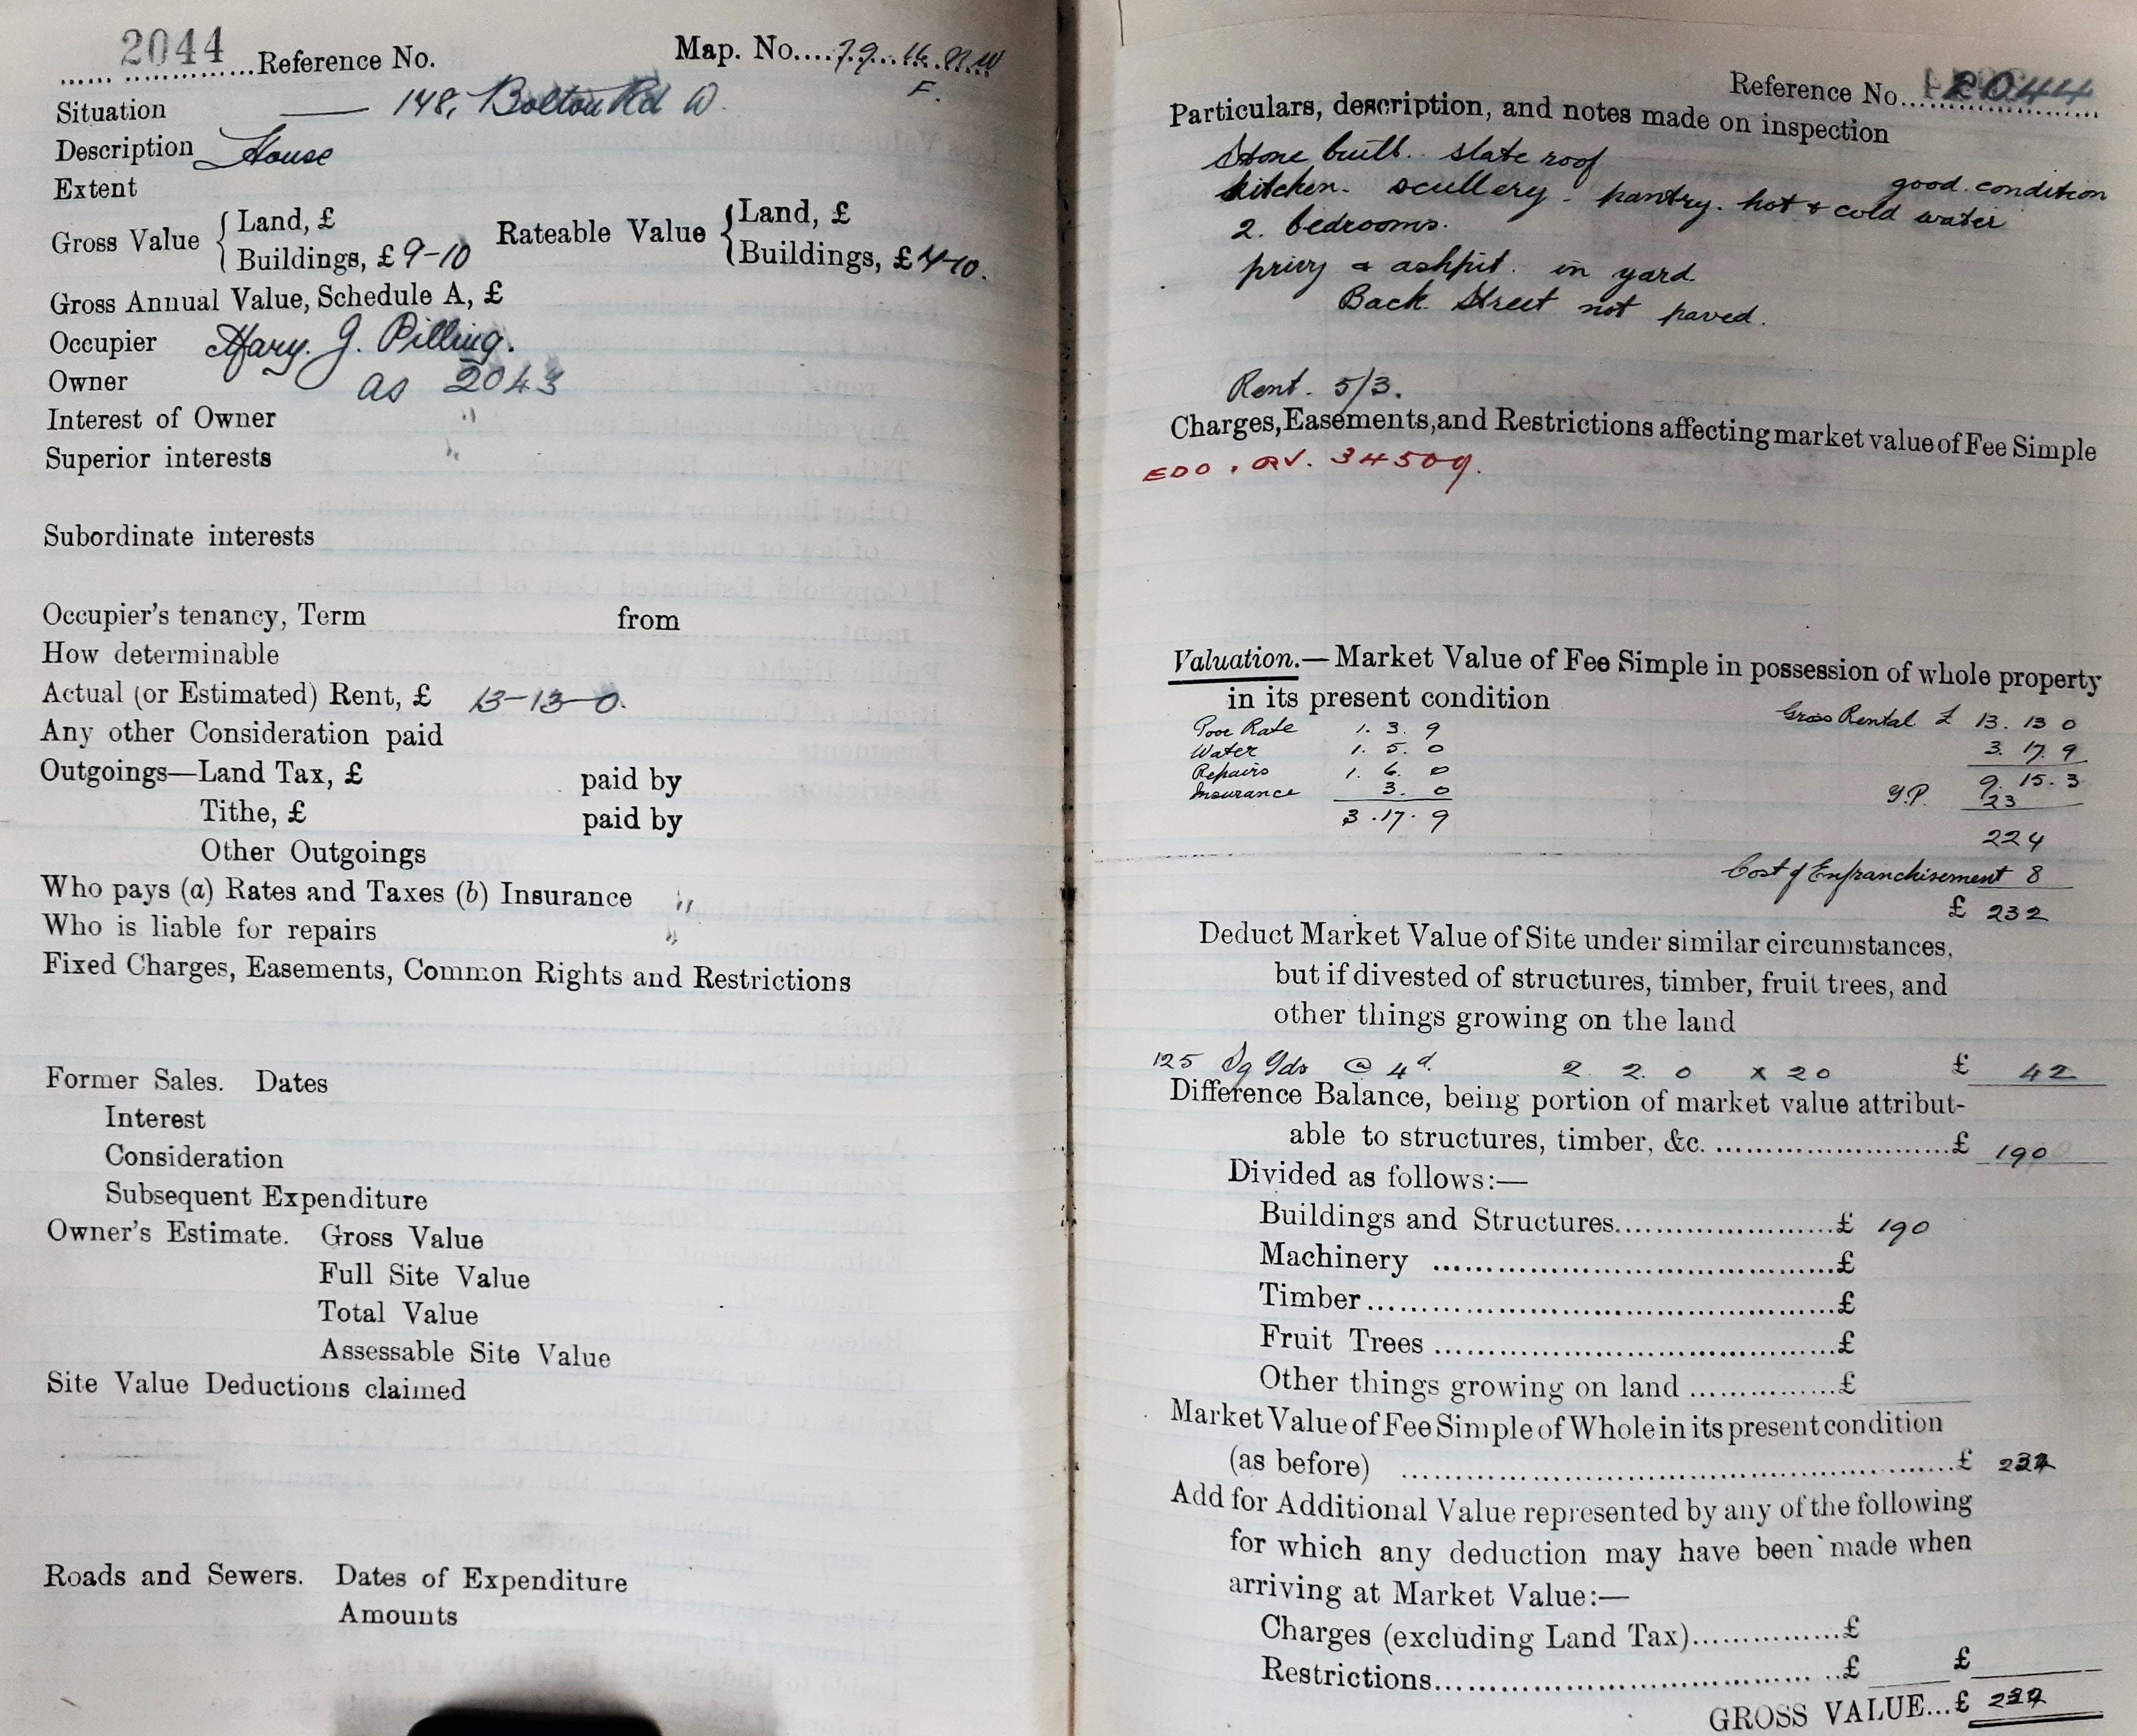 2044 Reference No. Map. No. 79. 16. N W
F.
Situation — 148, Bolton Rd W.
Description House
Extent
Gross Value { Land, £ Rateable Value { Land, £
Buildings, £ 9-10 Buildings, £
Gross Annual Value, Schedule A, £
Occupier Mary. J. Pilling.
Owner as 2043
Interest of Owner "
Superior interests "
Subordinate interests
Occupier's tenancy, Term from
How determinable
Actual (or Estimated) Rent, £ 13-13-0.
Any other Consideration paid
Outgoings—Land Tax, £ paid by
Tithe, £ paid by
Other Outgoings
Who pays (a) Rates and Taxes (b) Insurance "
Who is liable for repairs "
Fixed Charges, Easements, Common Rights and Restrictions
Former Sales. Dates
Interest
Consideration
Subsequent Expenditure
Owner's Estimate. Gross Value
Full Site Value
Total Value
Assessable Site Value
Site Value Deductions claimed
Roads and Sewers. Dates of Expenditure
Amounts
Reference No. 2044
Particulars, description, and notes made on inspection
Stone built. slate roof
good. condition
kitchen. scullery. pantry. hot & cold water
2. bedrooms.
privy & ashpit. in yard.
Back Street not paved.
Rent. 5/3.
Charges, Easements, and Restrictions affecting market value of Fee Simple
EDO. 34509.
Valuation.— Market Value of Fee Simple in possession of whole property
in its present condition
Gross Rental £ 13. 13 0
Poor Rate 1. 3. 9
Water 1. 5. 0 3. 17. 9
Repairs 1. 6. 0 9. 15. 3
Insurance 3. 0 Y.P. 23
3. 17. 9
224
Cost of Enfranchisement 8
£ 232
Deduct Market Value of Site under similar circumstances,
but if divested of structures, timber, fruit trees, and
other things growing on the land
125 Sq Yds @ 4d. 2 2. 0 x 20 £ 42
Difference Balance, being portion of market value attribut-
able to structures, timber, &c. £ 190
Divided as follows:—
Buildings and Structures £ 190
Machinery £
Timber £
Fruit Trees £
Other things growing on land £
Market Value of Fee Simple of Whole in its present condition
(as before) £ 232
Add for Additional Value represented by any of the following
for which any deduction may have been made when
arriving at Market Value:—
Charges (excluding Land Tax) £
Restrictions £ £
GROSS VALUE...£ 232